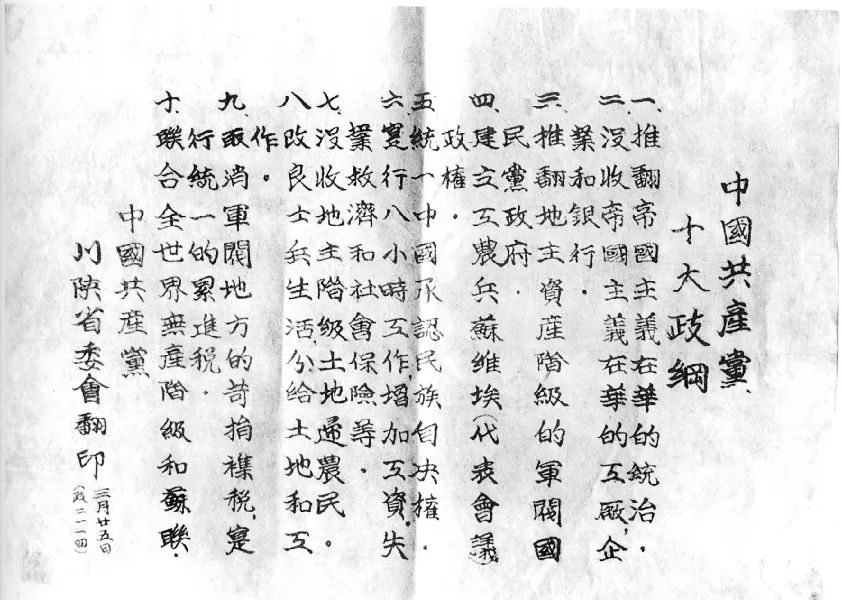 中國共產黨
十大政綱
一、推翻帝國主義在華的統治．
二、沒收帝國主義在華的工廠，企
業和銀行．
三、推翻地主資產階級的軍閥國
民黨政府．
四、建立工農兵蘇維埃(代表會議)
政權．
五、統一中國承認民族自决權．
六、寔行八小時工作，增加工資，失
業救濟和社會保險等．
七、沒收地主階級土地歸農民。
八、改良士兵生活，分給土地和工
作。
九、取消軍閥地方的苛捐襍稅，寔
行統一的累進稅．
十、聯合全世界無產階級和蘇聯．
中國共產黨
川陝省委會翻印
三月廿五日
(政二一一四)